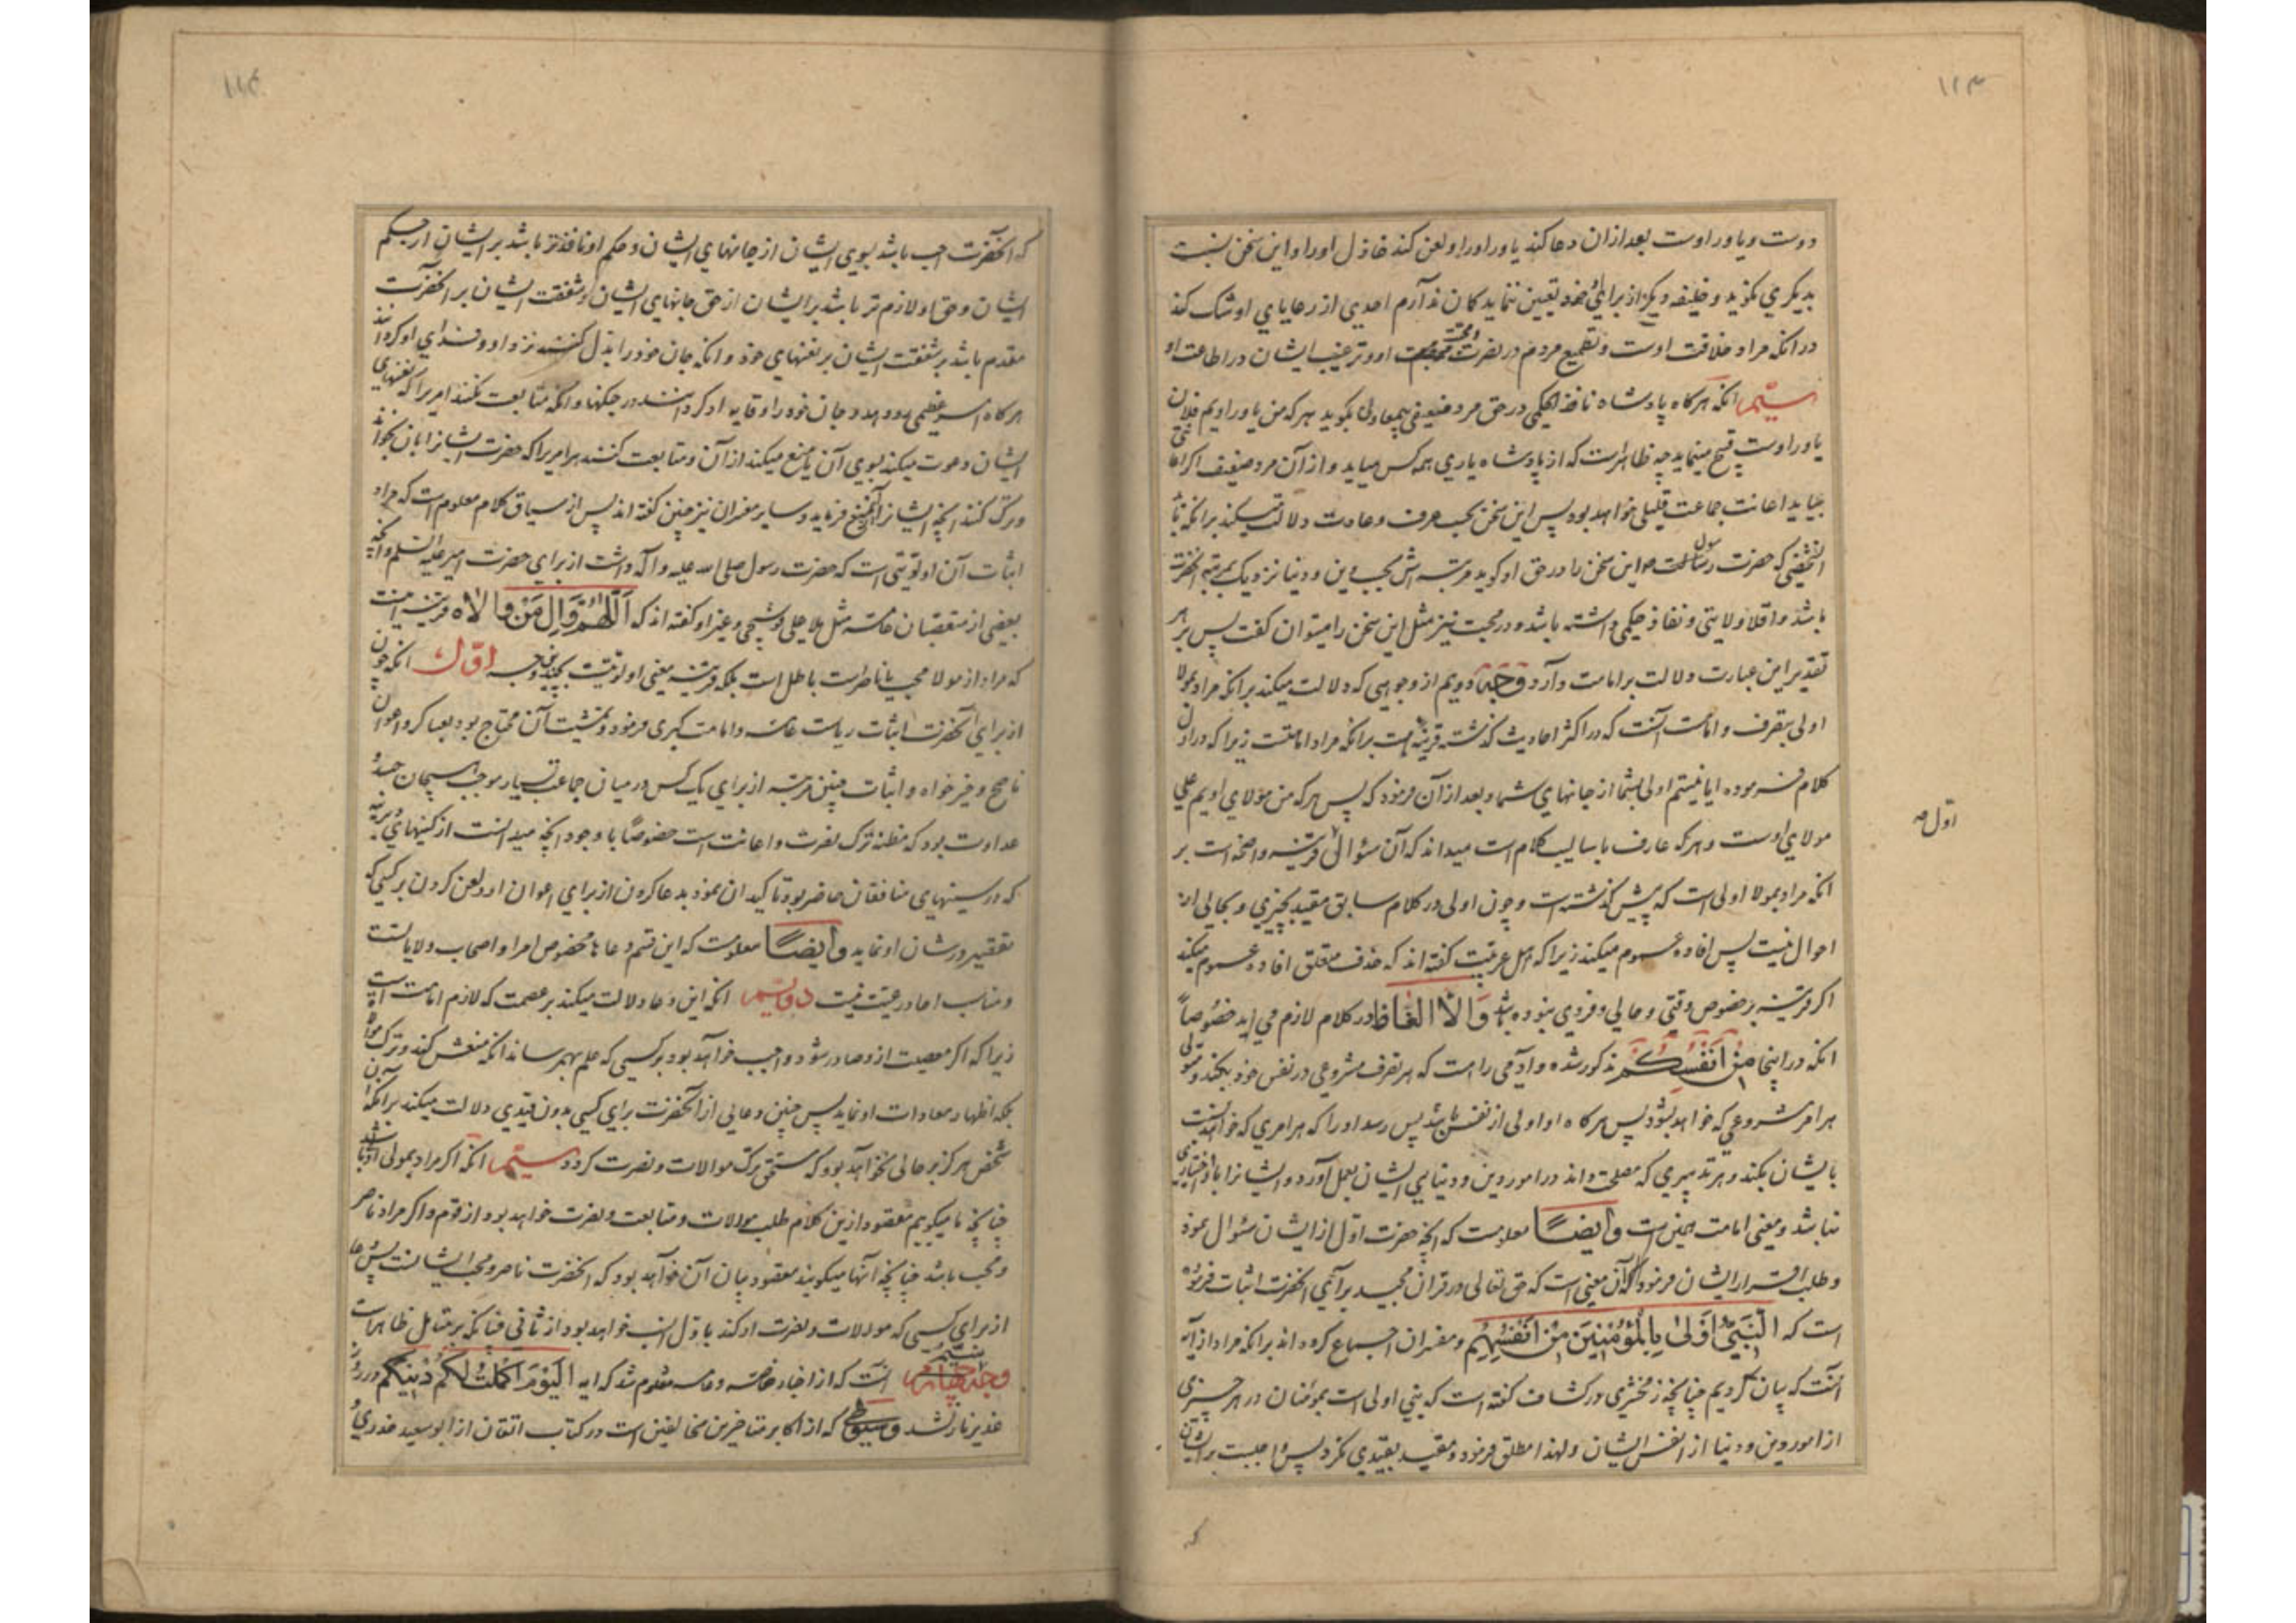 ۱۱۳
دوست و یاور اوست بعد از ان دعا کند یاور او را و لعن کند خاذل او را و این سخن نسبت
بدیکری نکوید و خلیفه دیکر از برای خود تعیین ننماید کمان ندارم احدی از رعایای او شک کند
در انکه مراد خلافت اوست و تطمیع مردم در نصرت و محبت او و ترغیب ایشان در اطاعت او
سیّم انکه هر کاه پادشاه نافذ الحکمی در حق مرد ضعیفی بکوید هر که من یاور اویم فلان
یاور اوست قبیح مینماید چه ظاهرست که از پادشاه یاری همه کس میاید و از آن مرد ضعیف اکر اعانتی
بیاید اعانت جماعت قلیلی خواهد بود پس این سخن بحسب عرف و عادت دلالت میکند برانکه تا
انشخصی که حضرت رسول این سخن را در حق او کوید مرتبه اش بحسب دین و دنیا نزدیک بمرتبه انحضرت
باشد و اقلا ولایتی و نفاذ حکمی داشته باشد و در محبت نیز مثل این سخن را میتوان کفت پس بر هر
تقدیر این عبارت دلالت بر امامت دارد وَجْه دویم از وجوهی که دلالت میکند برانکه مراد بمولا
اولی بتصرف و امامت آنست که در اکثر احادیث کذشته قرینه هست برانکه مراد امامتست زیرا که در اول
کلام فرموده ایا نیستم اولی بشما از جانهای شما و بعد از آن فرمود که پس هر که من مولای اویم علی
مولای اوست و هر که عارف باسالیب کلام است میداند که آن سؤال قرینه واضحه است بر
اول صه
انکه مراد بمولا اولی است که پیش کذشته است و چون اولی در کلام سابق مقید بچیزی و بحالی از
احوال نیست پس افاده عموم میکند زیرا که اهل عربیت کفته اند که حذف متعلق افاده عموم میکند
اکر قرینه بر خصوص وقتی و حالی و فردی نبوده باشد وَالّا الغاظ در کلام لازم می اید خصُوصاً
انکه در اینجا مِنْ اَنْفُسِكُمْ مذکور شده و آدمی را هست که هر تصرف مشروعی در نفس خود بکند و متولی
هر امر مشروعی که خواهد بشود پس هر کاه او اولی از نفس باشد پس رسد او را که هر امری که خواهد نسبت
بایشان بکند و هر تدبیری که مصلحت داند در امور دین و دنیای ایشان بعمل آورد و ایشانرا با او اختیاری
نباشد و معنی امامت همین است وَاَیضًا معلومست که انچه حضرت اوّل از ایشان سئوال نمود
و طلب اقرار ایشان فرمود آن معنی است که حق تعالی در قران مجید برای انحضرت اثبات فرموده
است که اَلنَّبِیُّ اَوْلیٰ بِالْمُؤْمِنِینَ مِنْ اَنْفُسِهِمْ و مفسران اجماع کرده اند برانکه مراد از آیه
آنست که بیان کردیم چنانچه زمخشری در کشاف کفته است که نبی اولی است بمؤمنان در هر چیزی
از امور دین و دنیا از انفس ایشان و لهذا مطلق فرمود و مقید بقیدی نکرد پس واجبست بر ایشان
که
که انحضرت احب باشد بسوی ایشان از جانهای ایشان و حکم او نافذتر باشد بر ایشان از حکم
ایشان و حق او لازم تر باشد بر ایشان از حق جانهای ایشان و شفقت ایشان بر انحضرت
مقدم باشد بر شفقت ایشان بر نفسهای خود و انکه جان خود را بذل کنند نزد او و فدای او کردانند
هر کاه امر عظیمی رو دهد و جان خود را وقایه او کردانند در جنکها و انکه متابعت نکنند امریرا که نفسهای
ایشان دعوت میکند بسوی آن یا منع میکند از آن و متابعت کنند هر امریرا که حضرت ایشانرا بان بخواند
و ترک کنند انچه ایشانرا از ان منع فرماید و سایر مفسران نیز چنین کفته اند پس از سیاق کلام معلوم است که مراد
اثبات آن اولویتی است که حضرت رسول صلی الله علیه و آله داشت از برای حضرت امیر علیه السلم و انچه
بعضی از متعصبان عامه مثل ملا علی قوشچی و غیر او کفته اند که اَللّٰهُمَّ وَالِ مَنْ وٰالاٰهُ قرینه است
که مراد از مولا محب یا ناصر است باطل است بلکه قرینه معنی اولویت بچندین وجه اوّل انکه چون
از برای انحضرت اثبات ریاست عامه و امامت کبری فرمود و تمشیت آن محتاج بود بعساکر و اعوان
ناصح و خیرخواه و اثبات چنین مرتبه از برای یک کس در میان جماعت بسیار موجب هیجان حسد و
عداوت بود که مظنه ترک نصرت و اعانت است خصوصًا با وجود انچه میدانست از کینهای دیرینه
که در سینهای منافقان حاضر بود تاکید ان نمود بدعا کردن از برای اعوان او و لعن کردن بر کسی که
تقصیر در شان او نماید وَاَیضًا معلومست که این قسم دعاها مخصوص امرا و اصحاب ولایاتست
و مناسب احاد رعیت نیست دویّم انکه این دعا دلالت میکند بر عصمت که لازم امامت است
زیرا که اکر معصیت از و صادر شود واجب خواهد بود بر کسی که علم بهم رساند انکه منعش کند و ترک موالات
بلکه اظهار معادات او نماید پس چنین دعائی از انحضرت برای کسی بدون قیدی دلالت میکند برانکه آن
شخص هرکز بر حالی نخواهد بود که مستحق ترک موالات و نصرت کردد سیّم انکه اکر مراد بمولی اولی باشد
چنانچه ما میکوییم مقصود ازین کلام طلب موالات و متابعت و نصرت خواهد بود از قوم و اکر مراد ناصر
و محب باشد چنانچه آنها میکویند مقصود بیان آن خواهد بود که انحضرت ناصر و محب ایشانست پس دعا
از برای کسی که موالات و نصرت او کند با اوّل انسب خواهد بود از ثانی چنانکه بر متامل ظاهر است
وجه سیّم انست که از اخبار خاصه و عامه معلوم شد که ایه اَلْیَوْمَ اَكْمَلْتُ لَكُمْ دٖینَكُمْ در روز
غدیر نازل شد و سیوطی که از اکابر متاخرین مخالفین است در کتاب اتقان از ابو سعید خدری